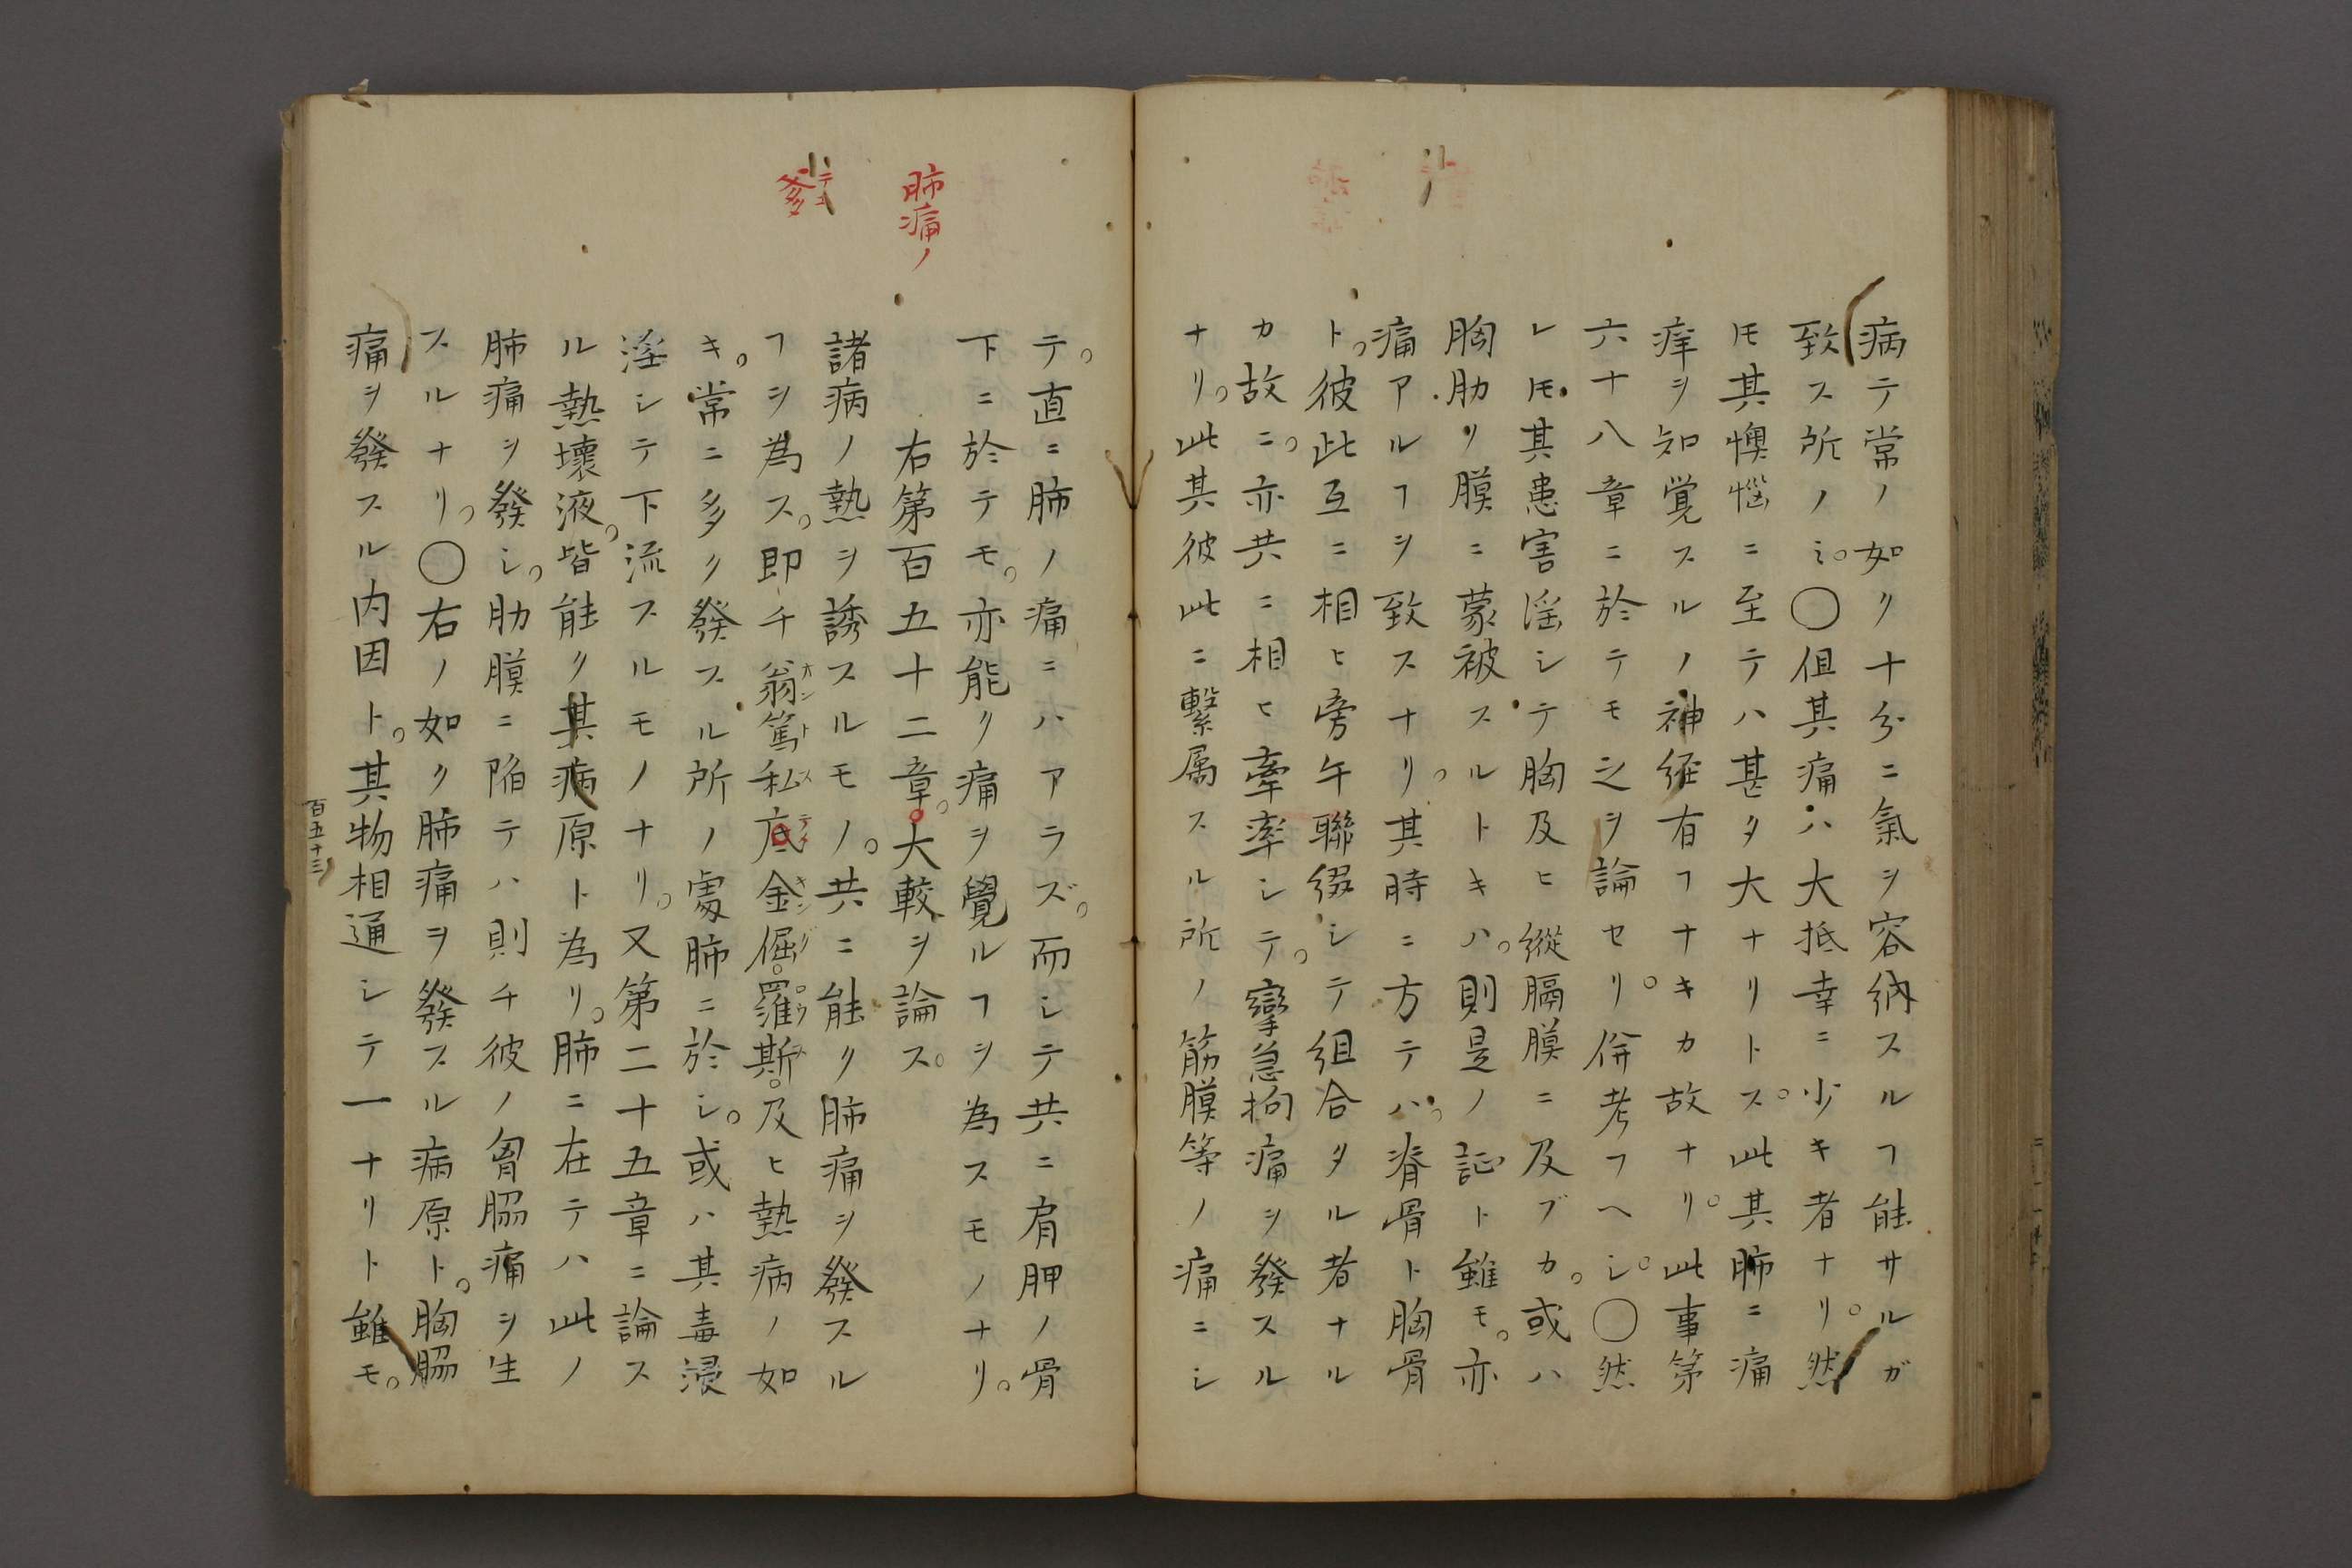 病テ常ノ如ク十分ニ氣ヲ容納スルヿ能サルガ
致ス所ノミ。○但其痛ハ大抵幸ニ少キ者ナリ。然
𪜈其懊悩ニ至テハ甚タ大ナリトス。此其肺ニ痛
痒ヲ知覚スルノ神経有ヿナキカ故ナリ。此事第
六十八章ニ於テモ之ヲ論セリ。併考フヘシ。○然
レ𪜈其患害淫シテ胸及ヒ縦膈膜ニ及ブカ。或ハ
胸肋ノ膜ニ蒙被スルトキハ。則是ノ証ト雖モ。亦
痛アルヿヲ致スナリ。其時ニ方テハ。脊骨ト胸骨
ト。彼此互ニ相ヒ旁午聯綴シテ組合タル者ナル
カ故ニ。亦共ニ相ヒ牽率シテ。攣急拘痛ヲ發スル
ナリ。此其彼此ニ繋属スル所ノ筋膜等ノ痛ニシ
テ。直ニ肺ノ痛ニハアラズ。而シテ共ニ肩胛ノ骨
下ニ於テモ。亦能ク痛ヲ覺ルヿヲ為スモノナリ。
右第百五十二章。大較ヲ論ス。
肺痛ノ
諸病ノ熱ヲ誘スルモノ。共ニ能ク肺痛ヲ發スル
ヿヲ為ス。即チ翁篤私底金倔羅斯。及ヒ熱病ノ如
キ。常ニ多ク發スル所ノ處肺ニ於シ。或ハ其毒浸
淫シテ下流スルモノナリ。又第二十五章ニ論ス
ル熱壞液。皆能ク其病原ト為リ。肺ニ在テハ此ノ
肺痛ヲ發シ。肋膜ニ陥テハ則チ彼ノ胷脇痛ヲ生
スルナリ。○右ノ如ク肺痛ヲ發スル病原ト。胸脇
痛ヲ發スル内因ト。其物相通シテ一ナリト雖モ。
百五十三